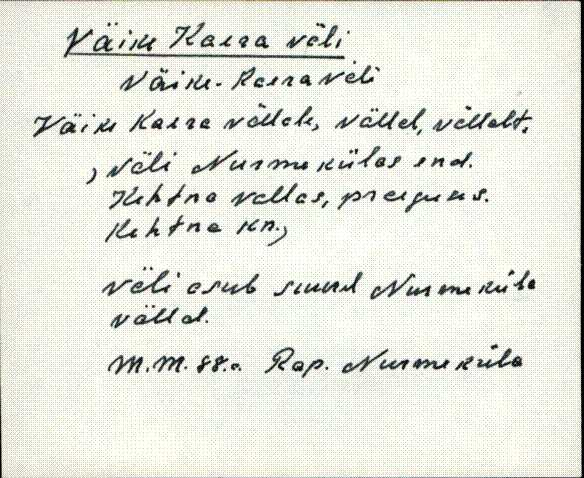 Väike Kaera väli
Väike-Kaera väli
Väike Kaera väljale, väljal, väljalt.
, väli Nurme külas end.
Kehtna vallas, praegus.
Kehtna kn.,
väli asub suurel Nurme küla
väljal.
M.M. 88.a. Rap. Nurme küla